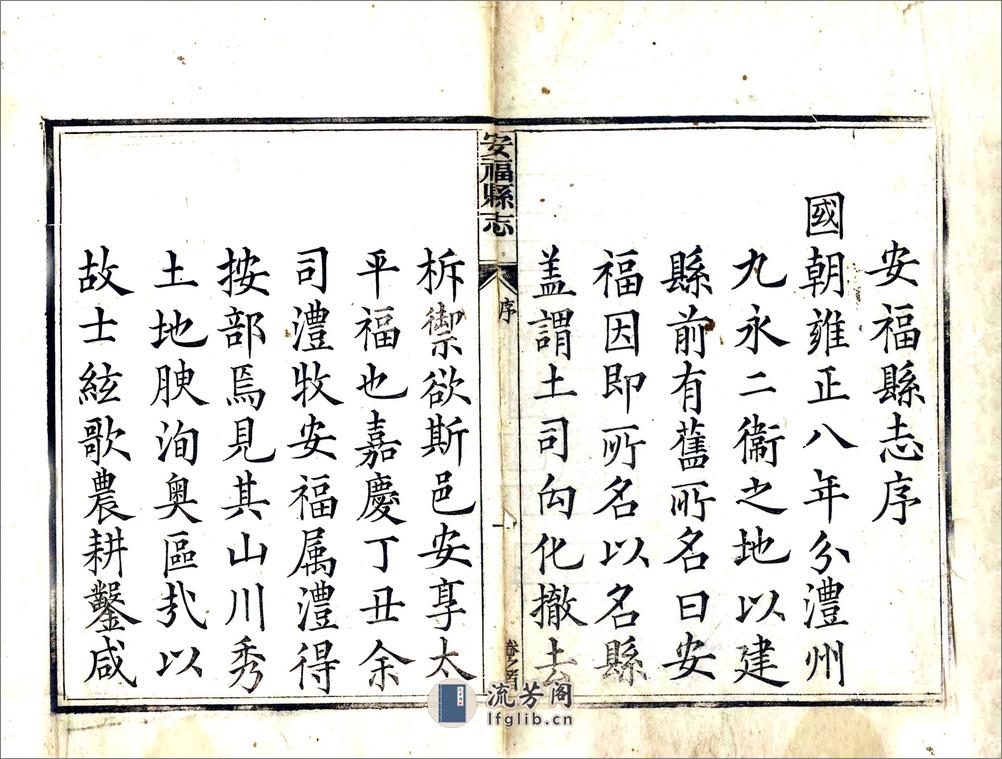 安福縣志序
國朝雍正八年分澧州
九永二衞之地以建
縣前有舊所名曰安
福因即所名以名縣
蓋謂土司向化撤去
安福縣志
序
一
卷之首
柝禦欲斯邑安享太
平福也嘉慶丁丑余
司澧牧安福属澧得
按部焉見其山川秀
土地腴洵奥區哉以
故士絃歌農耕鑿咸
流芳阁
lfglib.cn